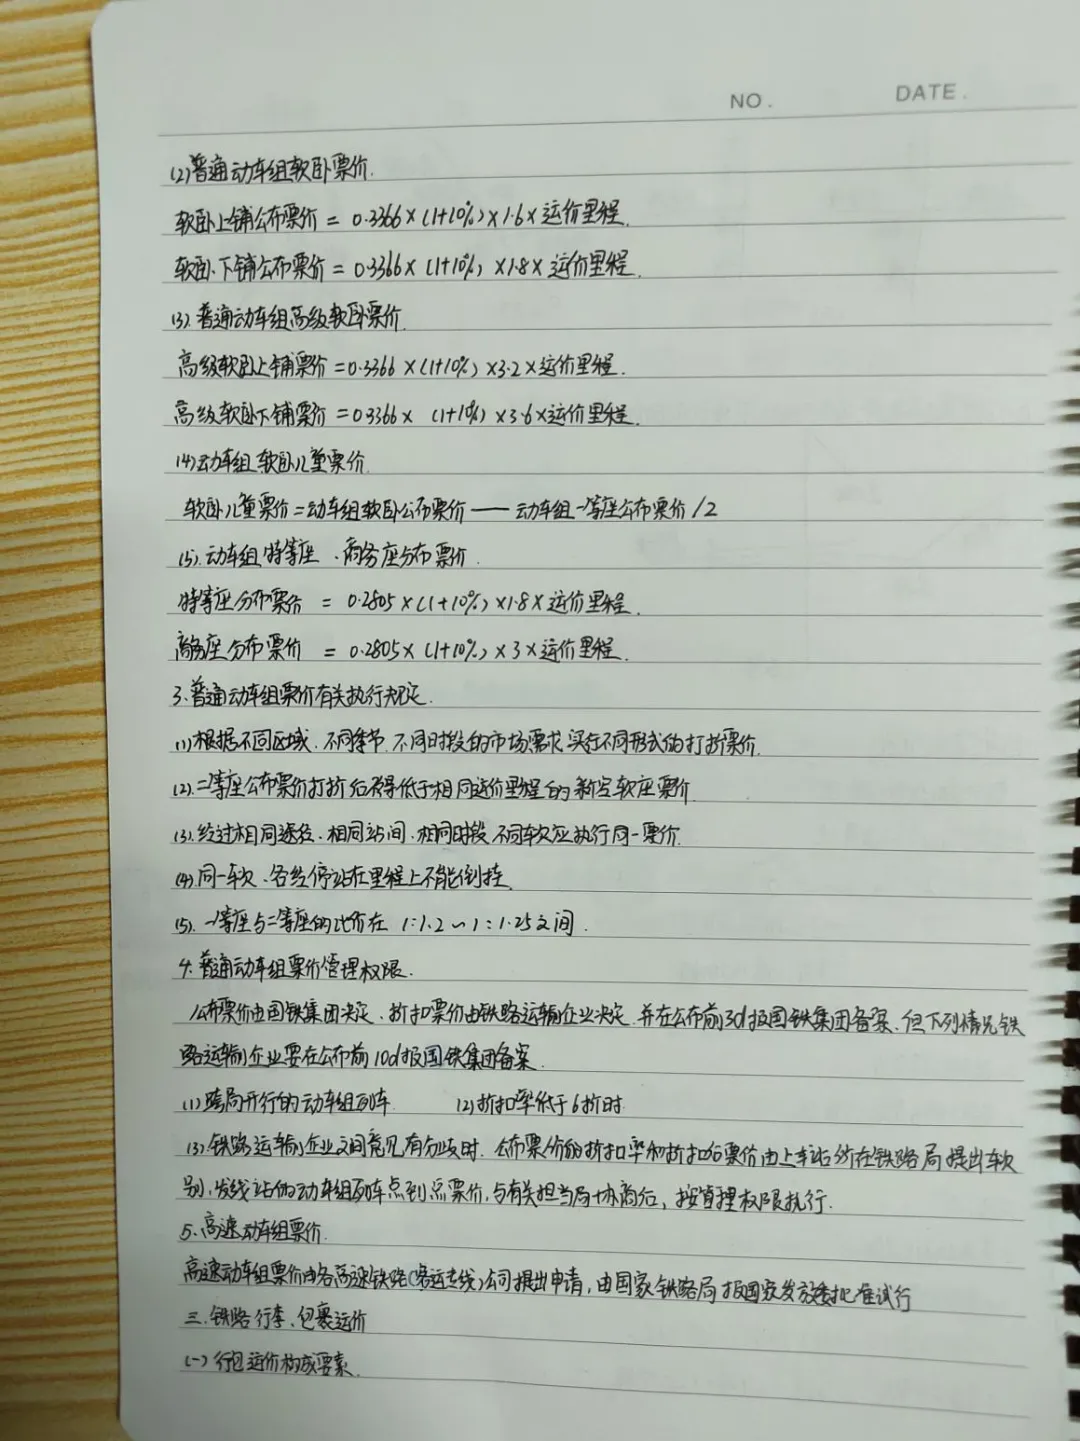 NO.
DATE.
(2)普通动车组软卧票价.
软卧上铺公布票价 = 0.3366×(1+10%)×1.6×运价里程.
软卧下铺公布票价 = 0.3366×(1+10%)×1.8×运价里程.
(3).普通动车组高级软卧票价.
高级软卧上铺票价 = 0.3366×(1+10%)×3.2×运价里程.
高级软卧下铺票价 = 0.3366×(1+10%)×3.6×运价里程.
(4)动车组软卧儿童票价.
软卧儿童票价=动车组软卧公布票价——动车组一等座公布票价/2
(5).动车组特等座、商务座公布票价.
特等座公布票价 = 0.2805×(1+10%)×1.8×运价里程.
商务座公布票价 = 0.2805×(1+10%)×3×运价里程.
3.普通动车组票价有关执行规定.
(1)根据不同区域、不同季节、不同时段的市场需求实行不同形式的打折票价.
(2).二等座公布票价打折后不得低于相同运价里程的新空软座票价
(3).经过相同途径、相同站间、相同时段不同车次应执行同一票价.
(4).同一车次、各经停站在里程上不能倒挂.
(5).一等座与二等座的比价在 1:1.2~1:1.25之间.
4.普通动车组票价管理权限.
公布票价由国铁集团决定、折扣票价由铁路运输企业决定.并在公布前3d报国铁集团备案、但下列情况铁
路运输企业要在公布前10d报国铁集团备案.
(1)跨局开行的动车组列车. (2)折扣率低于6折时.
(3).铁路运输企业之间意见有分歧时.公布票价的折扣率和折扣后票价由上车站所在铁路局提出车次
别、发线站的动车组列车点到点票价,与有关担当局协商后,按管理权限执行.
5.高速动车组票价.
高速动车组票价由各高速铁路(客运专线)公司提出申请,由国家铁路局报国家发改委批准试行
三.铁路行李、包裹运价
(一)行包运价构成要素.